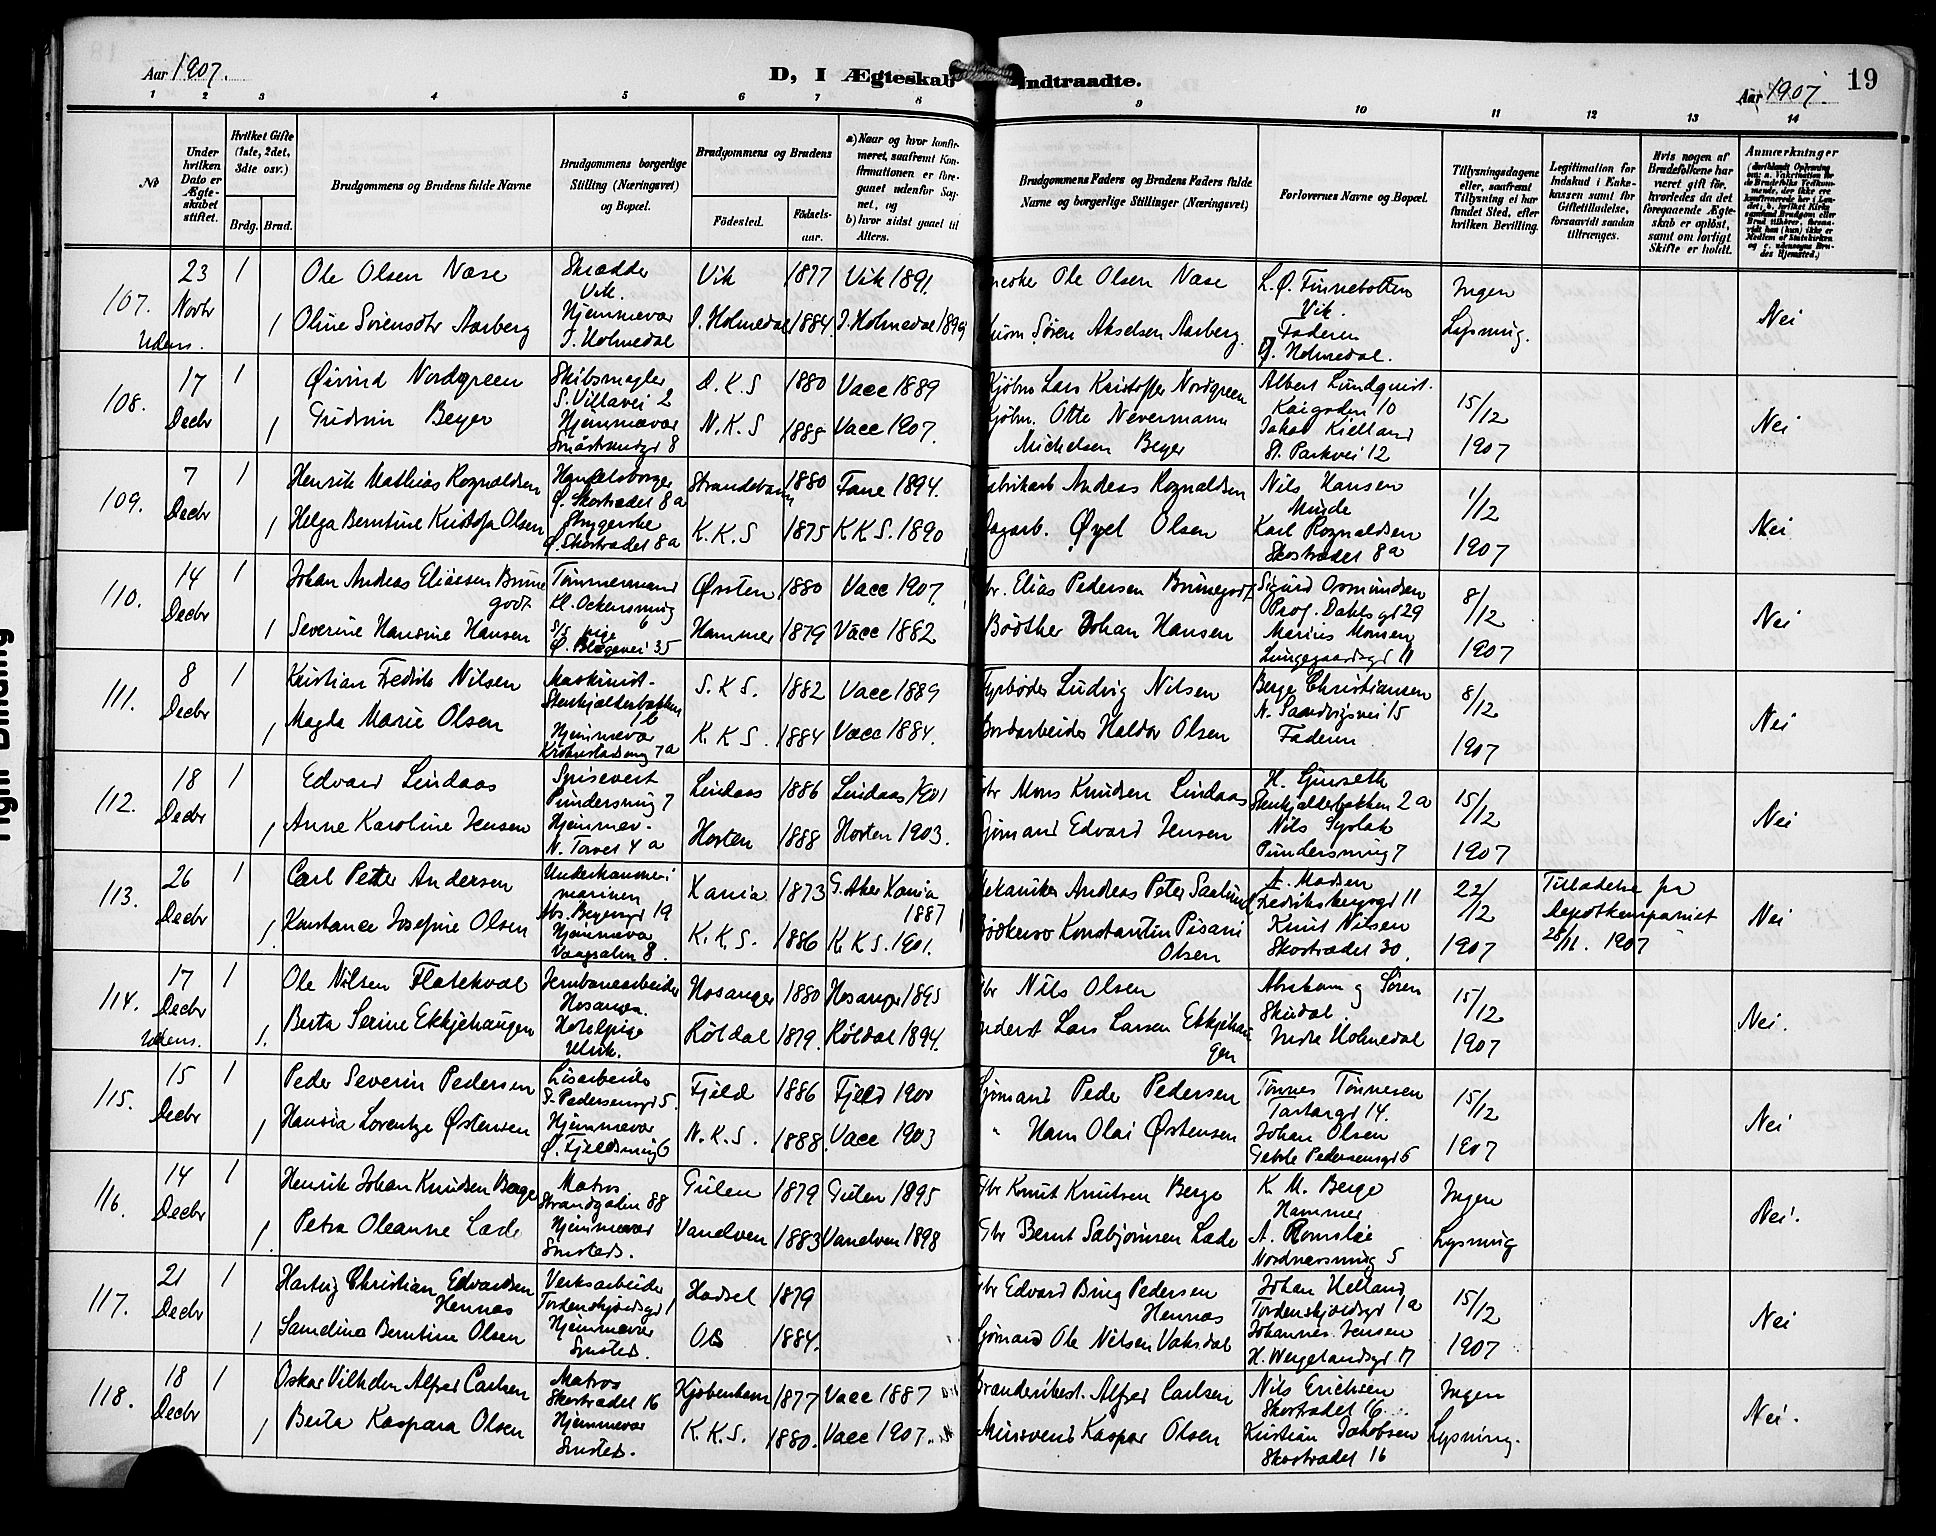 Aar 1907.
D, I Ægteskab Indtraadte.
Aar 1907.
19
1 2 3 4 5 6 7 8 9 10 11 12 13 14
No
Under hvilken Dato er Ægteskabet stiftet.
Hvilket Gifte (1ste, 2det, 3die osv.)
Brdg. Brud.
Brudgommens og Brudens fulde Navne
Brudgommens borgerlige Stilling (Næringsvei) og Bopæl.
Brudgommens og Brudens
Fødested.
Fødselsaar.
a) Naar og hvor konfirmeret, saafremt Konfirmationen er foregaaet udenfor Sognet, og
b) hvor sidst gaaet til Alters.
Brudgommens Faders og Brudens Faders fulde Navne og borgerlige Stillinger (Næringsvei)
Forlovernes Navne og Bopæl.
Tillysningsdagene eller, saafremt Tillysning ei har fundet Sted, efter hvilken Bevilling.
Legitimation for Indskud i Enkekassen samt for Giftetilladelse, forsaavidt saadan tiltrænges.
Hvis nogen af Brudefolkene har været gift før, hvorledes da det foregaaende Ægteskab er opløst, samt om lovligt Skifte er holdt.
Anmærkninger
107. Udens.
23 Novbr
1
Ole Olsen Nase
Skrædder Vik.
Vik 1877 Vik 1891.
Ole Olsen Nase
L. Ø. Finnebotten Vik.
Ingen Lysning.
Nei
1
Oline Sørensdtr Aarberg
Hjemmevær I. Holmedal
I. Holmedal 1884. I. Holmedal 1899
Søren Akselsen Aarberg.
Faderen I. Holmedal.
108.
17 Decbr
1
Øivind Nordgreen
Skibsmægler S. Villavei 2
D. K. S 1880 Vacc 1889
Kjøbm Lars Kristoffer Nordgreen
Albert Lundqvist. Kaigaden 10
15/12 1907
Nei
1
Gudrun Beyer
Hjemmevær Smaastrandgd 8
N. K. S 1885 Vacc 1907.
Kjøbm. Otto Nevermann Michelsen Beyer
Jakob Kielland St. Parkvei 12
109.
7 Decbr
1
Henrik Mathias Rognaldsen
Handelsborger Ø. Skostrædet 8a
Strandebarm 1880 Fane 1894.
Fabrikarb Andreas Rognaldsen
Nils Hansen Minde
1/12 1907
Nei
1
Helga Berntine Kristofa Olsen
Strygerske Ø. Skostrædet 8a
K. K. S 1875 K K S. 1890
Dagarb. Øyel Olsen
Karl Rognaldsen Skostrædet 8a
110.
14 Decbr
1
Johan Andreas Eliassen Brunegodt
Tømmermand Kl. Ockensmug 6
Ørsten 1880 Vacc 1907.
Elias Pedersen Brunegodt
Sigurd Osmundsen Prof. Dahls gd 29
8/12 1907
Nei
1
Severine Hansine Hansen
pige Ø. Blegevei 35
Hammer 1879 Vacc 1882
Bødker Johan Hansen
Marius Monsen Lungegaardsgd 11
111.
8 Decbr
1
Kristian Fredrik Nilsen
Maskinist Stenkjælderbakken 1b
S. K S. 1882 Vacc 1889
Fyrbøder Ludvig Nilsen
Berge Christiansen N. Sandvigsvei 15
8/12 1907
Nei
1
Magda Marie Olsen
Hjemmevær 7a
K. K S. 1884 Vacc 1884.
Jordarbeider Haldor Olsen
Faderen
112.
18 Decbr
1
Edvard Lindaas
Spisevert Pundersmug 7
Lindaas 1886 Lindaas 1901
Mons Knudsen Lindaas
H. Gjerseth Stenkjælderbakken 2 a
15/12 1907
Nei
1
Anne Karoline Jensen
Hjemmev. N. Torvet 4 a
Horten 1888 Horten 1903.
Sjømand Edvard Jensen
Nils Pundersmug 7
113.
26 Decbr
1
Carl Petter Andersen
Underkanoner i marinen Abs. Beyersgd 19
Xania 1873 G. Aker Xania 1887
Mekaniker Andreas Peter
A. Madsen Fredriksbergsgd 11
22/12 1907
Tilladelse fra Depotkompaniet 28/11. 1907
Nei
1.
Konstance Josefine Olsen
Hjemmevær Vaagsalm 8.
K. K. S. 1886 K K S. 1901.
Bødkersv Konstantin Pisani Olsen
Knut Nilsen Skostrædet 30.
114. Udens.
17 Decbr
1
Ole Nilsen Flatekval
Jernbanearbeider Hosanger.
Hosanger 1880 Hosanger 1895
Gbr Nils Olsen
Abraham og Søren Skudal. Indre Holmedal
15/12 1907
Nei.
1.
Berta Serine Ekkjehaugen
Hotelpige Ulvik.
Røldal 1879. Røldal 1894.
Lars Larsen Ekkjehaugen
115.
15 Decbr
1
Peder Severin Pedersen
Lisarbeider G. Pedersensgd 5.
Fjeld 1886 Fjeld 1900
Sjømand Peder Pedersen
Tønnes Tønnesen Tartargd 14.
15/12 1907
Nei
1
Hansia Lorentze Østensen
Hjemmevær Ø. Fjeldsmug 6
N. K. S. 1888. Vacc 1903
" Hans Olai Østensen
Johan Olsen Gabrle Pedersensgd 5
116.
14 Decbr
1
Henrik Johan Knudsen Berge
Matros Strandgaden 88
Gulen 1879 Gulen 1895
Gbr Knut Knutsen Berge
K. M. Berge Hammer
Ingen Lysning
Nei.
1.
Petra Oleanne Lade
Hjemmevær Smsteds.
Vandven 1883 Vandven 1898
Gbr Bernt Sabjørnsen Lade
A. Romsløe Nordnæsmug 5
117.
21 Decbr
1
Hartvig Christian Edvardsen Hennas
Verksarbeider Tordenskjoldsgd 1
Hadsel 1879
Gbr Edvard Bing Pedersen Hennas
Johan Helland Tordenskjoldsgd 1 a
15/12 1907
Nei
1
Samelina Berntine Olsen
Hjemmevær Smsted.
Os 1884.
Sjømand Ole Nilsen Vaksdal
Johannes Jensen H. Wergelandsgd 17
118.
18 Decbr
1
Oskar Vilhelm Alfred Carlsen
Matros Skostrædet 16
Kjøbenhavn 1877 Vacc 1887
Alfred Carlsen
Nils Erichsen Skostrædet 16
Ingen Lysning.
Nei.
1
Berta Kaspara Olsen
Hjemmevær Smsted.
K. K. S. 1880. Vacc 1907.
Mursvend Kaspar Olsen
Kristian Jakobsen Skostrædet 16